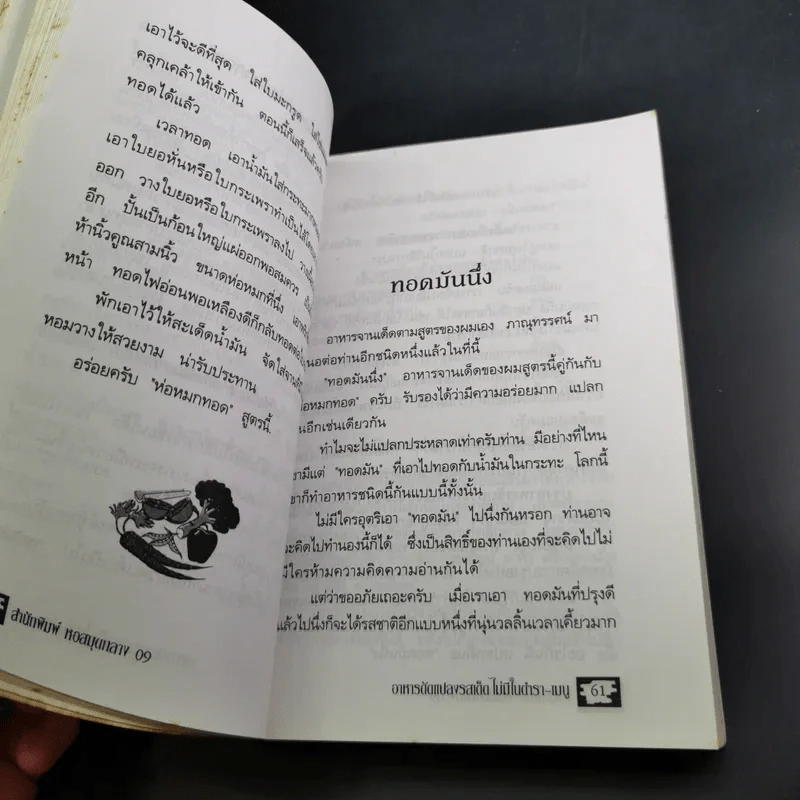 เอาไว้จะดีที่สุด ใส่ใบมะกรูด
คลุกเคล้าให้เข้ากัน ตอนนี้ก็เสร็จแล้ว
ทอดได้แล้ว
เวลาทอด เอาน้ำมันใส่กระทะ
เอาใบยอหั่นหรือใบกระเพราทำเป็นไส้
ออก วางใบยอหรือใบกระเพราลงไป
อีก ปั้นเป็นก้อนใหญ่แผ่ออกพอสมควร
ห้านิ้วคูณสามนิ้ว ขนาดห่อหมกที่นึ่ง
หน้า ทอดไฟอ่อนพอเหลืองดีก็กลับทอดต่อ
พักเอาไว้ให้สะเด็ดน้ำมัน จัดใส่จาน
หอมวางให้สวยงาม น่ารับประทาน
อร่อยครับ "ห่อหมกทอด" สูตรนี้
สำนักพิมพ์ หอสมุดกลาง 09
ทอดมันนึ่ง
อาหารจานเด็ดตามสูตรของผมเอง ภาณุทรรศน์ มา
นอต่อท่านอีกชนิดหนึ่งแล้วในที่นี้
"ทอดมันนึ่ง" อาหารจานเด็ดของผมสูตรนี้คู่กันกับ
ห่อหมกทอด" ครับ รับรองได้ว่ามีความอร่อยมาก แปลก
นอีกเช่นเดียวกัน
ทำไมจะไม่แปลกประหลาดเท่าครับท่าน มีอย่างที่ไหน
ขามีแต่ "ทอดมัน" ที่เอาไปทอดกับน้ำมันในกระทะ โลกนี้
ขาก็ทำอาหารชนิดนี้กันแบบนี้ทั้งนั้น
ไม่มีใครอุตริเอา "ทอดมัน" ไปนึ่งกันหรอก ท่านอาจ
จะคิดไปทำนองนี้ก็ได้ ซึ่งเป็นสิทธิ์ของท่านเองที่จะคิดไปไม่
มีใครห้ามความคิดความอ่านกันได้
แต่ว่าขออภัยเถอะครับ เมื่อเราเอา ทอดมันที่ปรุงดี
แล้วไปนึ่งก็จะได้รสชาติอีกแบบหนึ่งที่นุ่นวลลิ้นเวลาเคี้ยวมาก
อาหารดัดแปลงรสเด็ด ไม่มีในตำรา-เมนู 61